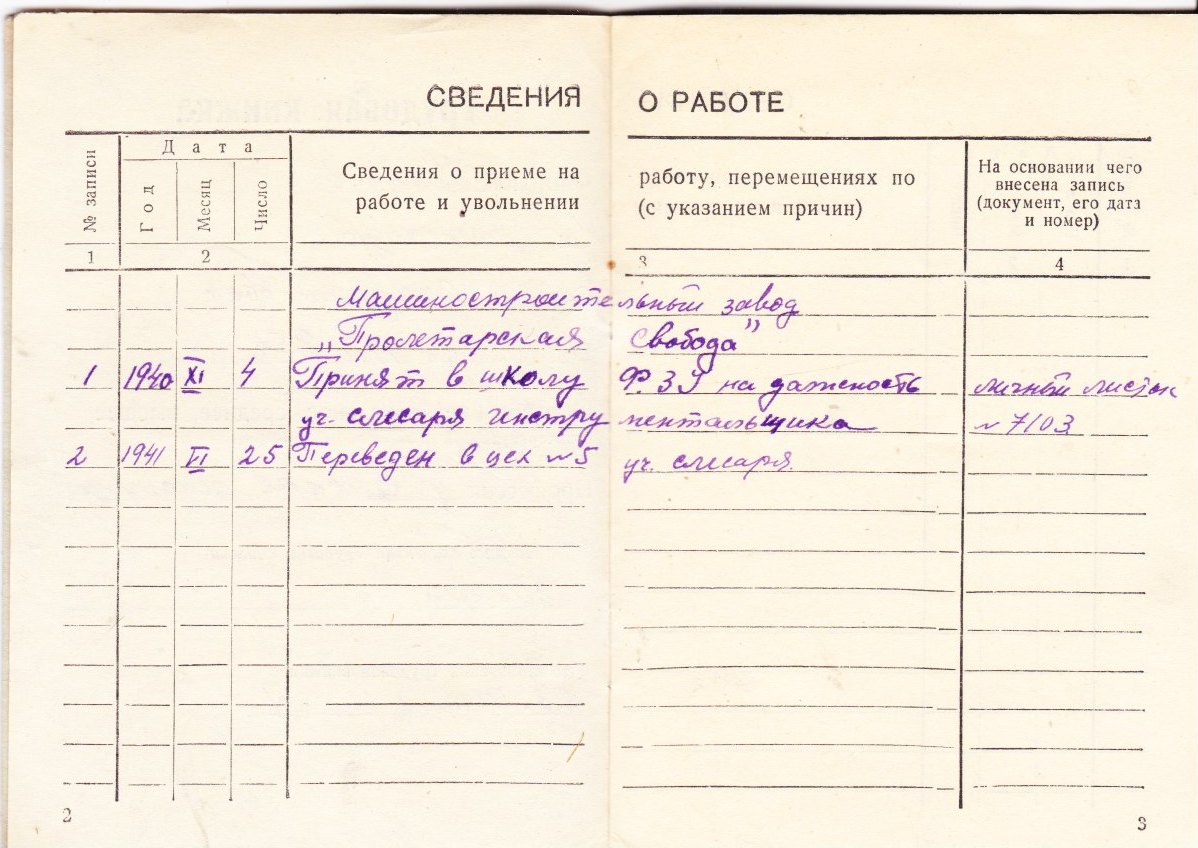 СВЕДЕНИЯ О РАБОТЕ
№ записи
Дата
Год
Месяц
Число
Сведения о приеме на работу, перемещениях по
работе и увольнении (с указанием причин)
На основании чего
внесена запись
(документ, его дата
и номер)
1 2 3 4
Машиностроительный завод
„Пролетарская Свобода"
1 1940 XI 4 Принят в школу Ф.З.У на должность личный листок
уч. слесаря инструментальщика № 7103
2 1941 VI 25 Переведен в цех № 5 уч. слесаря
2 3